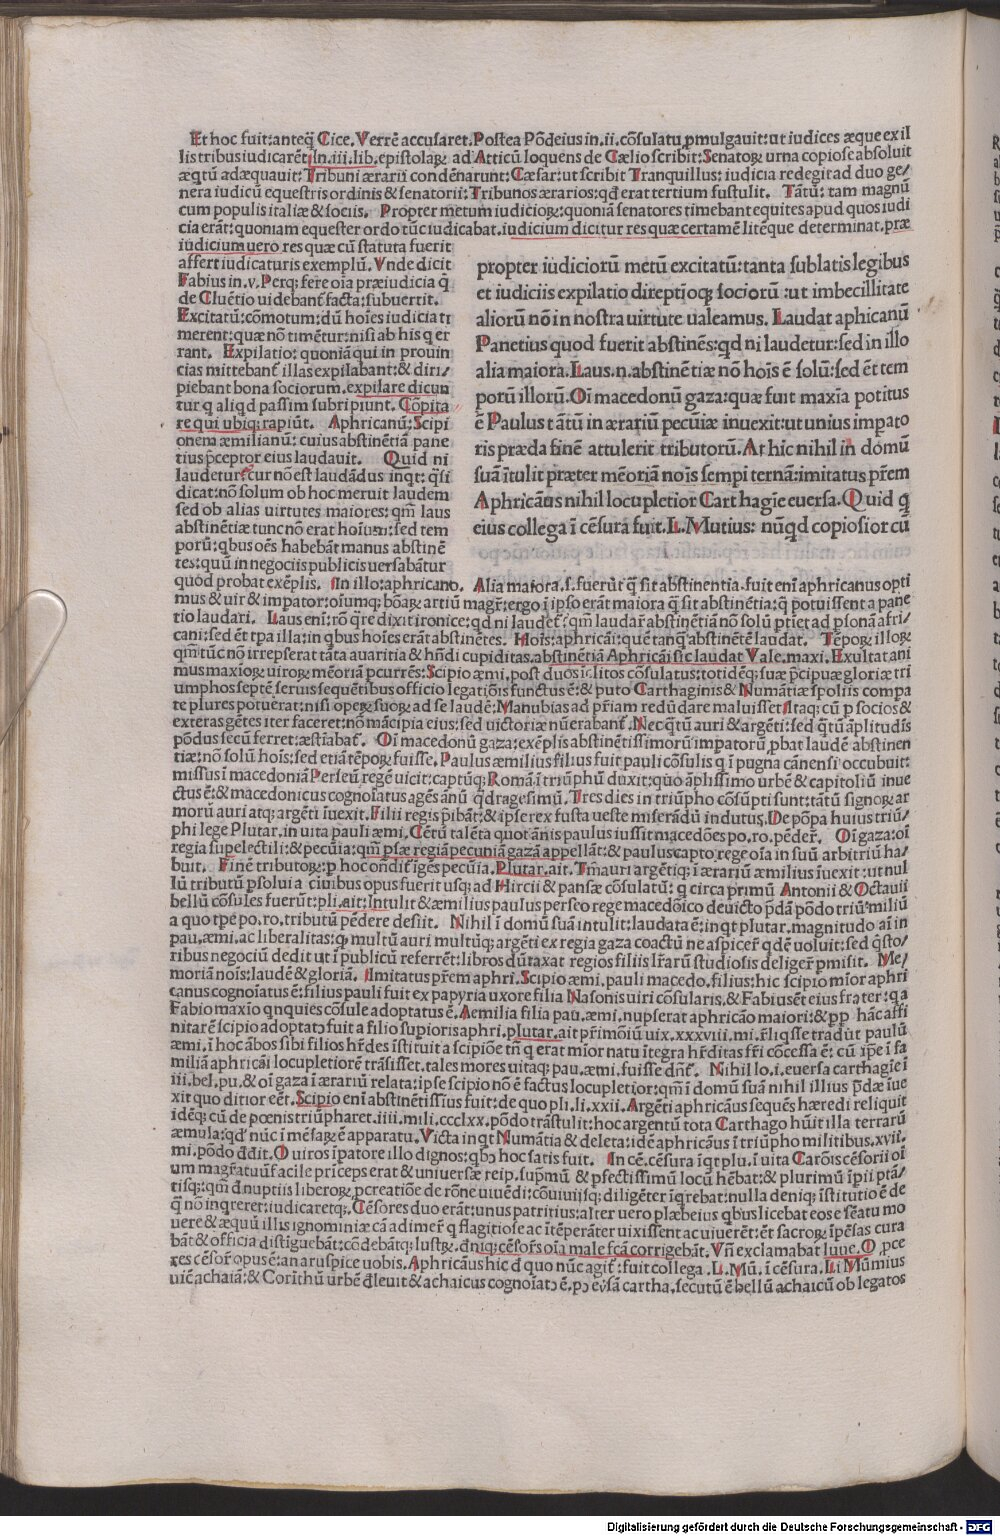 Et hoc fuit:anteq̃ Cice.Verrẽ accusaret.Postea Põpeius in.ii.cõsulatu ꝓmulgauit:ut iudices æque ex il
lis tribus iudicarẽt:In.iii.lib.epistolaꝝ ad Atticũ loquens de Cælio scribit:Senatoꝝ urna copiose absoluit
æqtũ adæquauit:Tribuni ærarii condẽnarunt:Cæsar:ut scribit Tranquillus:iudicia redegit ad duo ge/
nera iudicũ equestris ordinis & senatorii:Tribunos ærarios:qd erat tertium sustulit. Tãtũ:tam magnũ
cum populis italiæ & sociis. Propter metum iudicioꝝ:quoniã senatores timebant equites apud quos iudi
cia erãt:quoniam equester ordo tũc iudicabat.iudicium dicitur res quæ certamẽ litẽque determinat.præ
iudicium uero res quæ cũ statuta fuerit
affert iudicaturis exemplũ.Vnde dicit
Fabius in.v.Perq; fere oĩa præiudicia q̃
de Cluẽtio uidebant̃ facta:subuertit.
Excitatũ:cõmotum:dũ hoĩes iudicia ti
merent:quæ nõ timẽtur:nisi ab his q er
rant. Expilatio:quoniã qui in prouin
cias mittebant̃ illas expilabant:& diri/
piebant bona sociorum.expilare dicun
tur q aliqd passim subripiunt. Cõpita
re qui ubiq; rapiũt. Aphricanũ:Scipi
onem æmilianũ:cuius abstinẽtiã pane
tius p̃ceptor eius laudauit. Quid ni
laudetur:cur nõ est laudãdus inqt:q̃si
dicat:nõ solum ob hoc meruit laudem
sed ob alias uirtutes maiores:qm̃ laus
abstinẽtiæ tunc nõ erat hoĩum:sed tem
porũ:qbus oẽs habebãt manus abstinẽ
tes:quũ in negociis publicis uersabãtur
quod probat exẽplis. In illo:aphricano. Alia maiora.s.fuerũt q̃ sit abstinentia.fuit eni aphricanus opti
propter iudiciorũ metũ excitatũ:tanta sublatis legibus
et iudiciis expilatio direptioq; sociorũ :ut imbecillitate
aliorũ nõ in nostra uirtute ualeamus. Laudat aphicanũ
Panetius quod fuerit abstinẽs:qd ni laudetur:sed in illo
alia maiora.Laus.n.abstinẽtiæ nõ hoĩs ẽ solũ:sed ẽt tem
porũ illorũ.Oĩ macedonũ gaza:quæ fuit maxĩa potitus
ẽ Paulus tãtũ in ærariũ pecũiæ inuexit:ut unius impato
ris præda finẽ attulerit tributorũ.At hic nihil in domũ
suã ĩtulit præter mẽoriã noĩs sempiternã:imitatus p̃rem
Aphricãus nihil locupletior Carthagĩe euersa.Quid q̨
eius collega ĩ cẽsura fuit.L.Mutius: nũqd copiosior cũ
mus & uir & impator:oĩumq; bõaꝝ artiũ magr̃:ergo ĩ ipso erãt maiora q̃ sit abstinẽtia:q̃ potuissent a pane
tio laudari. Laus eni:rõ q̃re dixit ironice:qd ni laudet̃:qm̃ laudar̃ abstinẽtiã nõ solũ ptiet ad psonã afri/
cani:sed ẽt tpa illa:in qbus hoĩes erãt abstinẽtes. Hoĩs:aphricãi:quẽ tanq̃ abstinẽtẽ laudat. Tẽpoꝝ illoꝝ
qm̃ tũc nõ irrepserat tãta auaritia & hñdi cupiditas.abstinẽtiã Aphricãi sic laudat Vale.maxi.Exultat ani
mus maxioꝝ uiroꝝ mẽoriã pcurrẽs:Scipio æmi.post duos iclitos cõsulatus:totidẽq; suæ p̃cipuæ gloriæ tri
umphos septẽ seruis sequẽtibus officio legatiõis functus ẽ:& puto Carthaginis & Numãtiæ spoliis compa
te plures potuerat:nisi opeꝝ suoꝝ ad se laudẽ:Manubias ad p̃riam redũdare maluisset Itaq; cũ p socios &
exteras gẽtes iter faceret:nõ mãcipia eius:sed uictoriæ nũerabant̃.Nec q̃tũ auri & argẽti:sed q̃tũ ãplitudĩs
põdus secũ ferret:æstĩabat̃. Oĩ macedonũ gaza:exẽplis abstinẽtissimorũ ĩmpatorũ pbat laudẽ abstinen
tiæ:nõ solũ hoĩs:sed etiã tẽpoꝝ fuisse.Paulus æmilius filius fuit pauli cõsulis q ĩ pugna cãnensi occubuit:
missus ĩ macedoniã Perseũ regẽ uicit:captũq; Romã ĩ triũphũ duxit:quo ãplissimo urbẽ & capitoliũ inue
ctus ẽ:& macedonicus cognoĩatus agẽs ãnũ q̃dragesimũ.Tres dies in triũpho cõsũpti sunt:tãtũ signoꝝ ar
morũ auri atq; argẽti ĩuexit.Filii regis p̃ibãt:& ipse rex fusta ueste miserãdũ indutus.De põpa huius triũ/
phi lege Plutar.in uita pauli æmi.Cẽtũ talẽta quotãnis paulus iussit macedões po.ro.pẽder̃. Oĩ gaza:oĩ
regia supelectili:& pecũia:qm̃ psæ regiã pecuniã gazã appellãt:& paulus capto rege oĩa in suũ arbitriũ ha/
buit. Finẽ tributoꝝ:p hoc oñdit ĩgẽs pecũia.Plutar.ait.Tm̃ auri argẽtiq; ĩ ærariũ æmilius ĩuexit:ut nul
lũ tributũ psolui a ciuibus opus fuerit usq; ad Hircii & pansæ cõsulatũ:q circa primũ Antonii & Octauii
bellũ cõsules fuerũt:pli.ait:Intulit & æmilius paulus perseo rege macedõico deuicto p̃dã põdo triũ miliũ
a quo tpe po.ro.tributũ pẽdere desiit. Nihil ĩ domũ suã intulit:laudata ẽ:inqt plutar.magnitudo aĩ in
pau.æmi.ac liberalitas:q̨ multũ auri multũq; argẽti ex regia gaza coactũ ne aspicer̃ qdẽ uoluit:sed q̃sto/
ribus negociũ dedit ut ĩ publicũ referrẽt:libros dũtaxat regios filiis lr̃arũ studiosis deliger̃ pmisit. Me/
moriã noĩs:laudẽ & gloriã. Imitatus p̃rem aphri.Scipio æmi.pauli macedo.filius:hic scipio mĩor aphri
canus cognoĩatus ẽ:filius pauli fuit ex papyria uxore filia Nasonis uiri cõsularis.& Fabius ẽt eius frater:q a
Fabio maxĩo qnquies cõsule adoptatus ẽ.Aemilia filia pau.æmi.nupserat aphricão maiori:& pp hãc affi
nitatẽ scipio adoptatꝰ fuit a filio supioris aphri.plutar.ait p̃rimõiũ uix.xxxviii.mi.r̃liqsse tradũt paulũ
æmi.ĩ hoc ãbos sibi filios hr̃des ĩstituit a scipiõe tñ q erat mĩor natu ĩtegra hr̃ditas fr̃i cõcessa ẽ: cũ ip̃e ĩ fa
miliã aphricãi locupletiorẽ trãsisset.tales mores uitaq; pau.æmi.fuisse dñt̃. Nihil lo.i.euersa carthagĩe ĩ
iii.bel.pu.& oĩ gaza ĩ ærariũ relata:ipse scipio nõ ẽ factus locupletior:qm̃ ĩ domũ suã nihil illius p̃dæ ĩue
xit quo ditior eẽt.Scipio eni abstinẽtissĩus fuit:de quo pli.li.xxii.Argẽti aphricãus sequẽs hæredi reliquit
idẽq; cũ de pœnis triũpharet.iiii.mili.ccclxx.põdo trãstulit:hoc argentũ tota Carthago hũit illa terrarũ
æmula:qd̃ nũc ĩ mẽsaꝝ ẽ apparatu.Victa inqt Numãtia & deleta:idẽ aphricãus ĩ triũpho militibus.xvii.
mi.põdo ðdit.O uiros ĩpatore illo dignos:qbꝰ hoc satis fuit. In cẽ.cẽsura ĩqt plu.ĩ uita Carõis cẽsorii oĩ
um magr̃atuũ facile prĩceps erat & uniuersæ reip.supmũ & pfectissimũ locũ hẽbat:& plurimũ ĩpii ptã/
tisq;:qm̃ ð nuptiis liberoꝝ pcreatiõe de rõne uiuẽdi:cõuiuiisq; diligẽter ĩq̃rebat:nulla deniq; ĩstitutio ẽ de
q̃ nõ inqreret:iudicaretq;.Cẽsores duo erãt:unus patritius:alter uero plæbeius qbus licebat eos e sẽatu mo
uere & æquũ illis ignominiæ cã adimer̃ q flagitiose ac ĩtẽperãter uixissent ac uiuerẽt:ẽt sacroꝝ ĩpẽsas cura
bãt & officia distiguebãt:cõdebãtq; lustꝝ.ðniq; cẽsor̃s oĩa male fcã corrigebãt.Vñ exclamabat Iuue.O ꝓce
res cẽsor̃ opus ẽ:an aruspice uobis.Aphricãus hic ð quo nũc agit̃:fuit collega .L.Mũ.ĩ cẽsura.Li Mũmius
uic̃ achaiã:& Corithũ urbẽ ðleuit & achaicus cognoĩatꝰ ẽ.pꝰ euersã cartha.secutũ ẽ bellũ achaicũ ob legatos
Digitalisierung gefördert durch die Deutsche Forschungsgemeinschaft - DFG